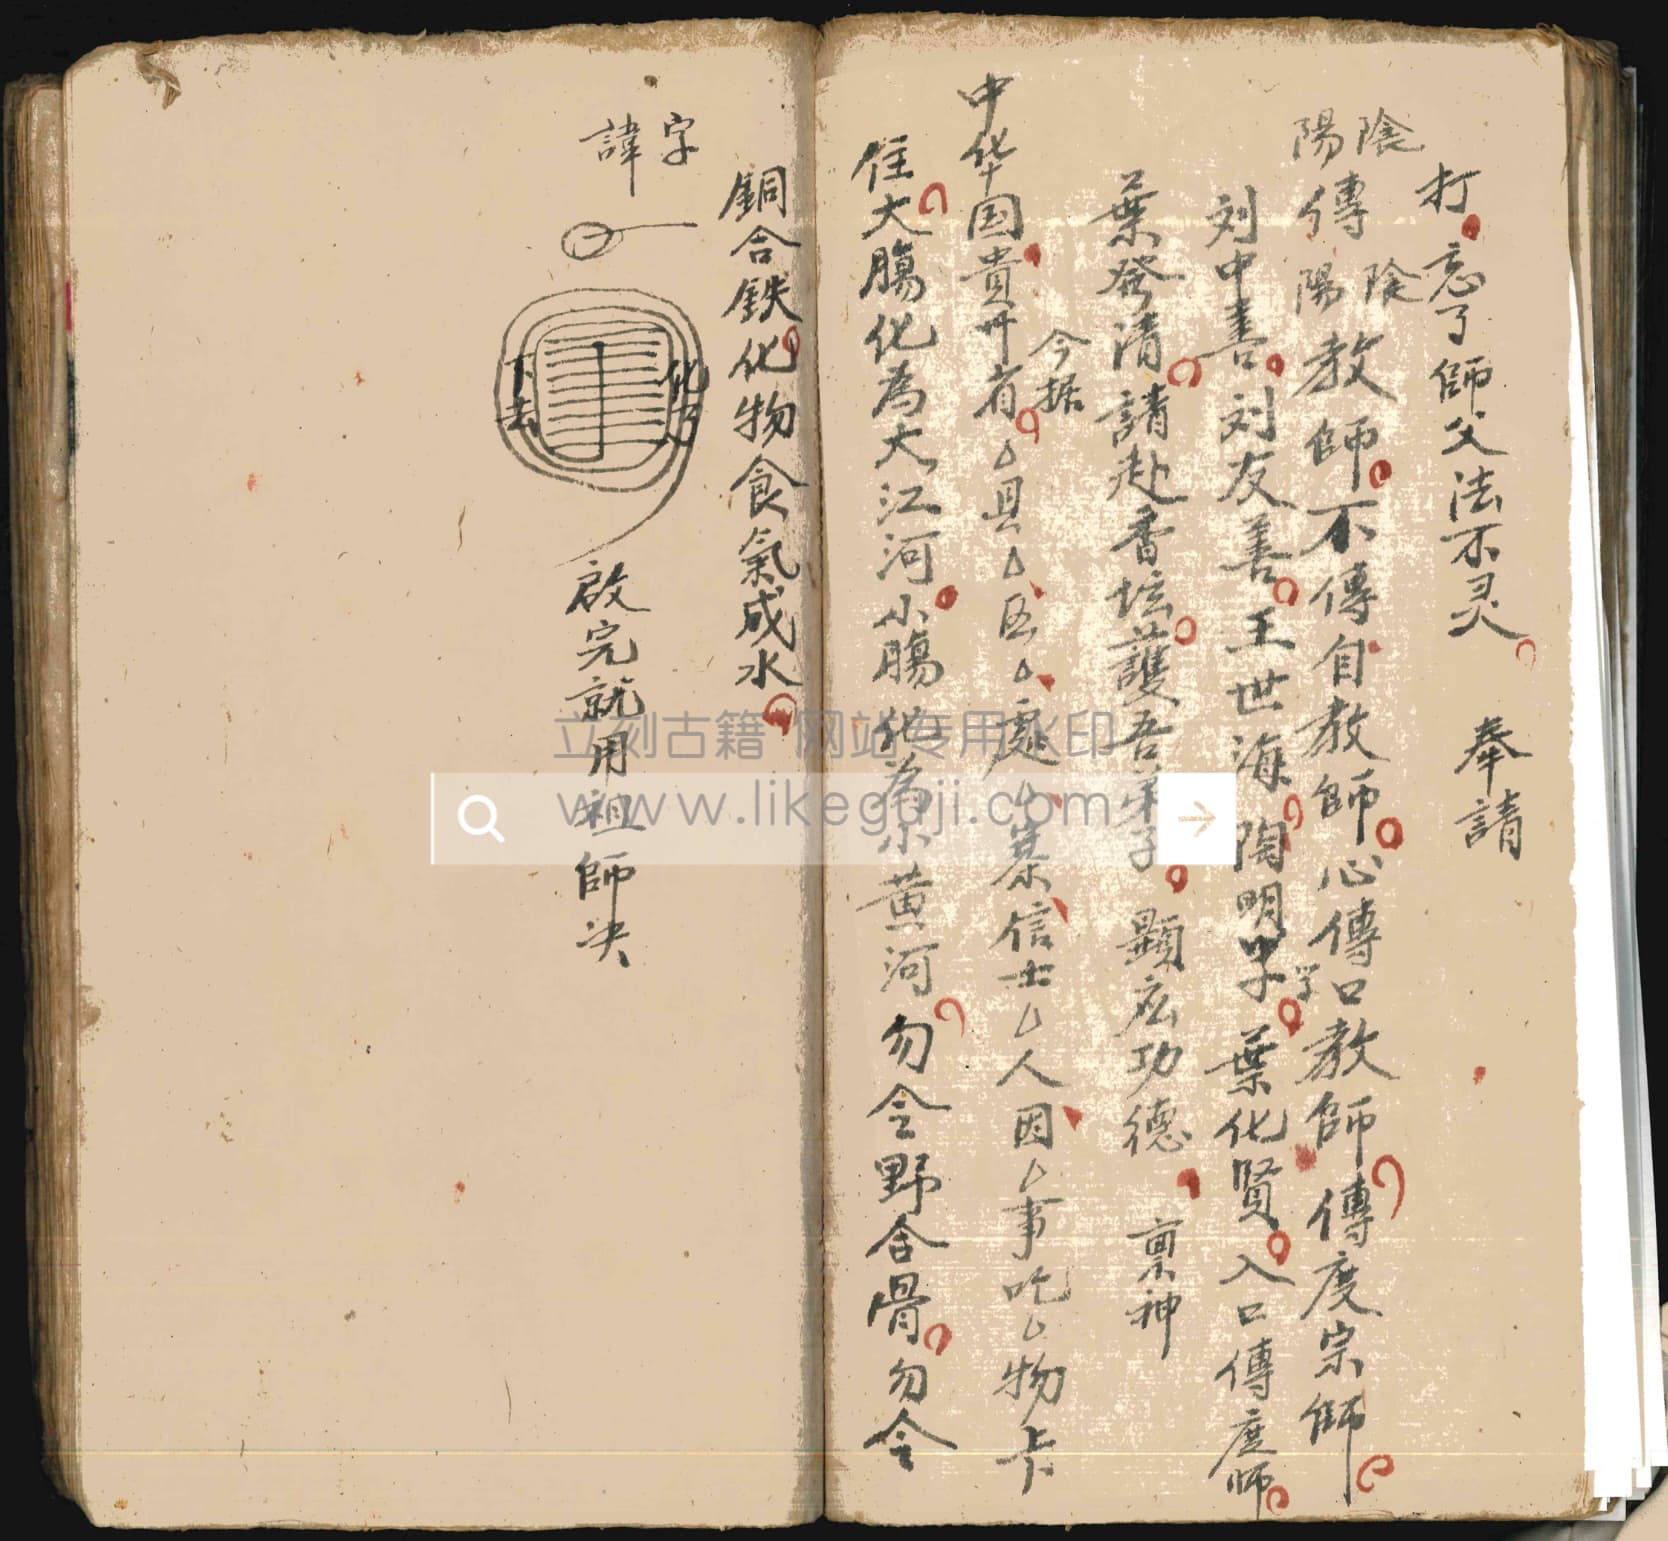 打忘了師父法不灵 奉請
陰陽傳陰陽教師不傳自教師心傳口教師傳度宗師
刘中善刘友善王世海陶明字葉化賢入口傳度師
葉發清請赴香坛護吾弟子顯灵功德 禀神
今据
中华国贵州省△县△区△處△寨信士△人因△事吃△物卡
住大腸化為大江河小腸化為小黄河勿令野舍骨勿令
銅合鉄化物食氣成水
字諱
化为
下去
啟完就用祖師决
立刻古籍 网站专用水印
www.likeguji.com